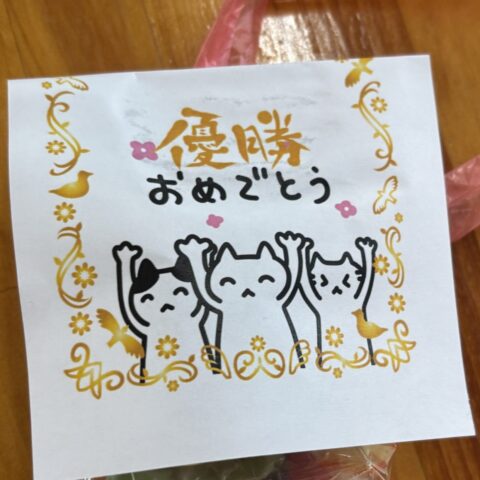 優勝
おめでとう